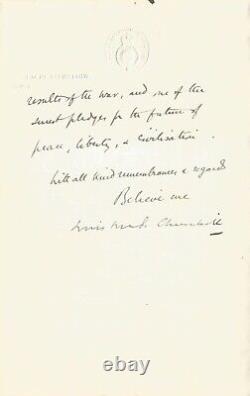 results of the war, and one of the
surest pledges for the future of
peace, liberty, & civilisation.
With all kind remembrances & regards
Believe me
Churchill